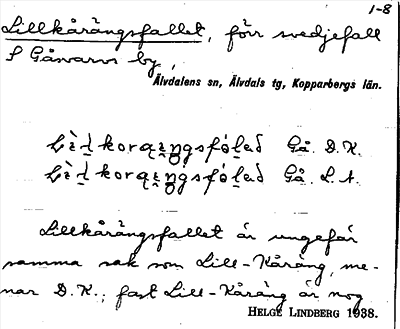 1-8
Lillkårängsfallet, förr svedjefall
S Gåsvarvs by,
Älvdalens sn, Älvdals tg, Kopparbergs län.
Gå. D.K.
Gå. L.A.
Lillkårängsfallet är ungefär
samma sak som Lill-Kåräng, me-
nar D.K.; fast Lill-Kåräng är nog
HELGE LINDBERG 1938.